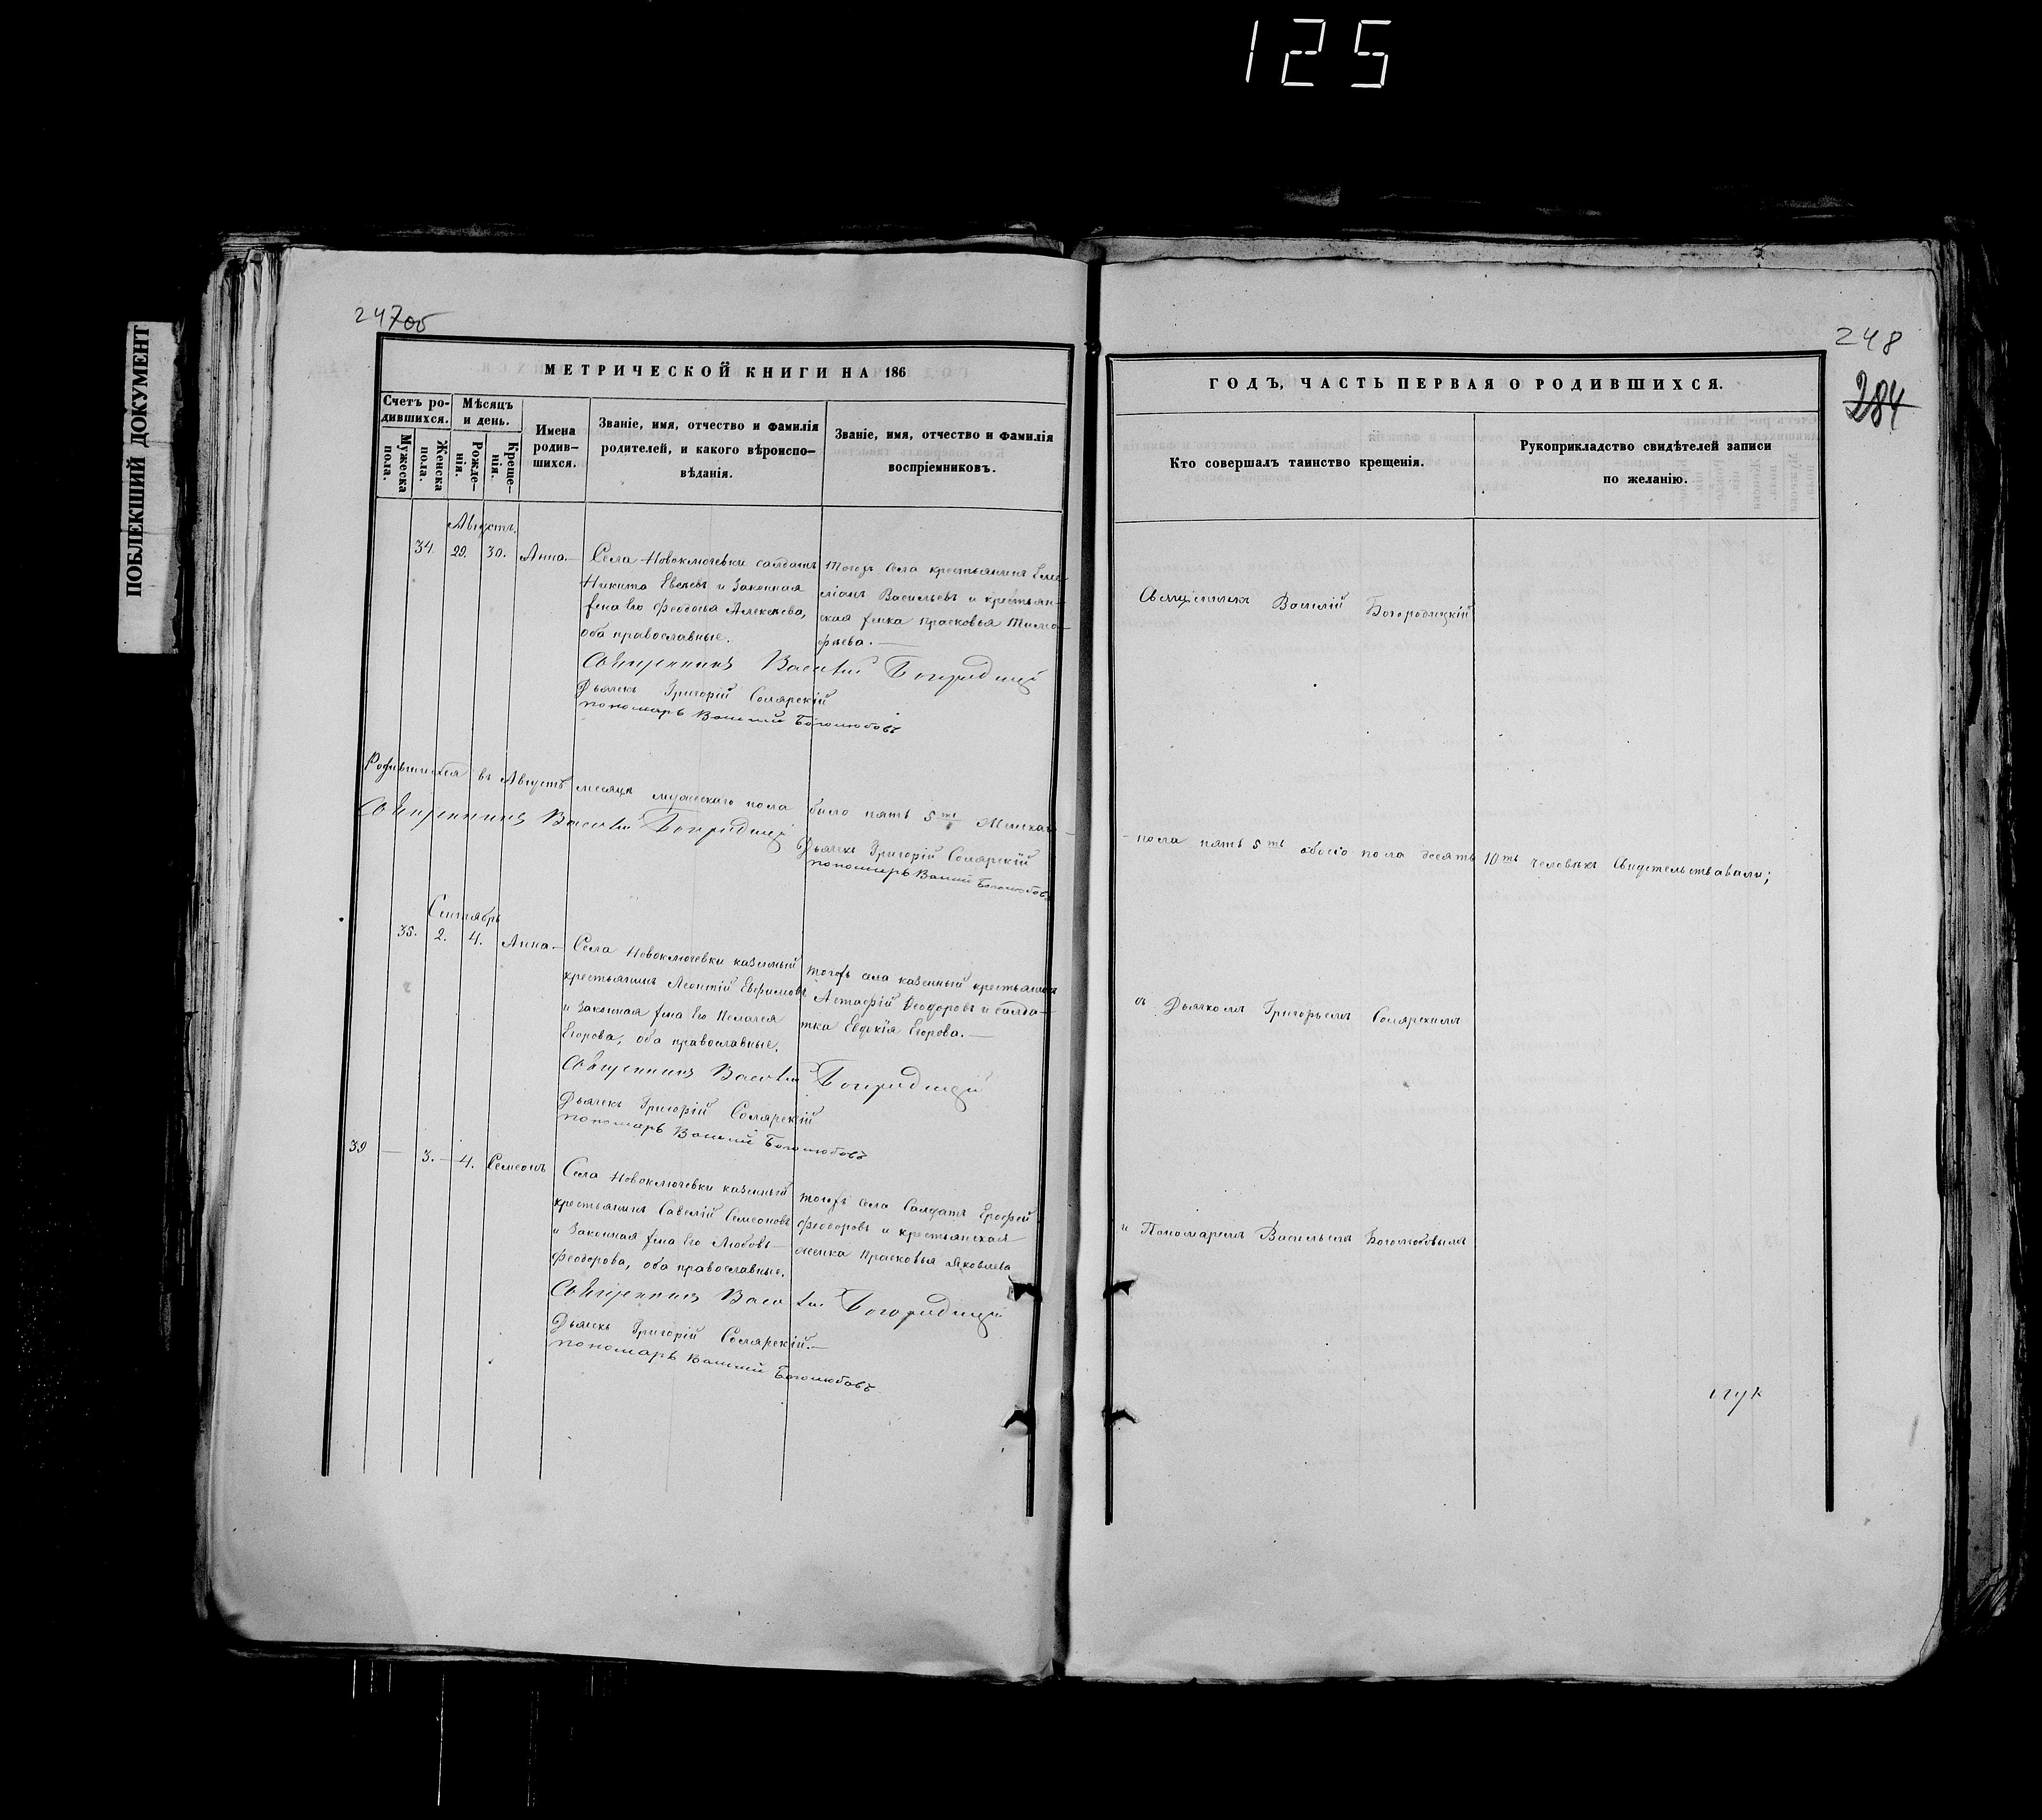 125
ПОБЛЕКШИЙ ДОКУМЕНТ
247об
МЕТРИЧЕСКОЙ КНИГИ НА 186
Счетъ ро-
дившихся.
Мужеска
пола.
Женска
пола.
Мѣсяцъ
и день.
Рожде-
нія.
Креще-
нія.
Имена
родив-
шихся.
Званіе, имя, отчество и фамилія
родителей, и какого вѣроиспо-
вѣданія.
Званіе, имя, отчество и фамилія
воспріемниковъ.
Августъ.
34. 29. 30. Анна.
Села Новоключевки салдатъ
Никита Евсеевъ и законная
жена его Феодосья Алексеева,
оба православные.
Тогожъ села крестьянинъ Еме-
ліанъ Васильевъ и крестьян-
ская женка Прасковья Тимо-
фѣева.
Священникъ Василій Богородицкій
Дьячекъ Григорій Солярскій
Пономарь Василій Боголюбовъ
Родившихся въ Августѣ месяцѣ мужескаго пола было пять 5ть Женскаго
Священникъ Василій Богородицкій
Дьячекъ Григорій Солярскій
Пономарь Василій Боголюбовъ
Сентябрь
35. 2. 4. Анна.
Села Новоключевки казенный
крестьянинъ Леонтій Евфимовъ
и законная жена его Пелагея
Егорова, оба православные.
Тогожъ села казенный крестьянинъ
Астафій Феодоровъ и салда-
тка Евдокія Егорова.
Священникъ Василій Богородицкій
Дьячекъ Григорій Солярскій
Пономарь Василій Боголюбовъ
39 — 3. 4. Семеонъ
Села Новоключевки казенный
крестьянинъ Савелій Семеоновъ
и законная жена его Любовь
Феодорова, оба православные.
Тогожъ села Салдатъ Ерофей
Феодоровъ и крестьянская
женка Прасковья Яковлева
Священникъ Василій Богородицкій
Дьячекъ Григорій Солярскій.
Пономарь Василій Боголюбовъ
248
284
ГОДЪ, ЧАСТЬ ПЕРВАЯ О РОДИВШИХСЯ.
Кто совершалъ таинство крещенія.
Рукоприкладство свидѣтелей записи
по желанію.
Священникъ Василій Богородицкій
пола пять 5ть обоего пола десять 10ть человѣкъ Свидетельствавали;
съ Дьячкомъ Григорьемъ Солярскимъ
и Пономаремъ Васильемъ Боголюбовымъ